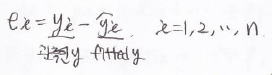 eᵢ = yᵢ - ŷᵢ, i=1,2,‥,n
y fitted y